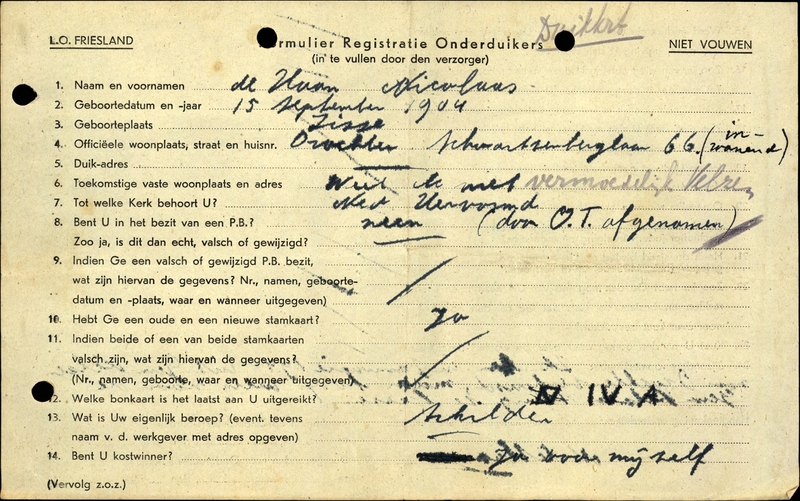 L.O. FRIESLAND
Formulier Registratie Onderduikers
NIET VOUWEN
(in te vullen door den verzorger)
1. Naam en voornamen de Haan Nicolaas
2. Geboortedatum en -jaar 15 September 1904
3. Geboorteplaats Lisse
4. Officiëele woonplaats, straat en huisnr. Schwartzenberglaan 66 (in-
wonend)
5. Duik-adres
6. Toekomstige vaste woonplaats en adres Weet ik niet vermoedelijk Velzen
7. Tot welke Kerk behoort U? Ned Hervormd
8. Bent U in het bezit van een P.B.? neen (door O.T. afgenomen)
Zoo ja, is dit dan echt, valsch of gewijzigd?
9. Indien Ge een valsch of gewijzigd P.B. bezit,
wat zijn hiervan de gegevens? Nr., namen, geboorte-
datum en -plaats, waar en wanneer uitgegeven)
10. Hebt Ge een oude en een nieuwe stamkaart? Ja
11. Indien beide of een van beide stamkaarten
valsch zijn, wat zijn hiervan de gegevens?
(Nr., namen, geboorte, waar en wanneer uitgegeven)
12. Welke bonkaart is het laatst aan U uitgereikt? IV A
13. Wat is Uw eigenlijk beroep? (event. tevens Schilder
naam v. d. werkgever met adres opgeven)
14. Bent U kostwinner? Ja voor mijself
(Vervolg z.o.z.)